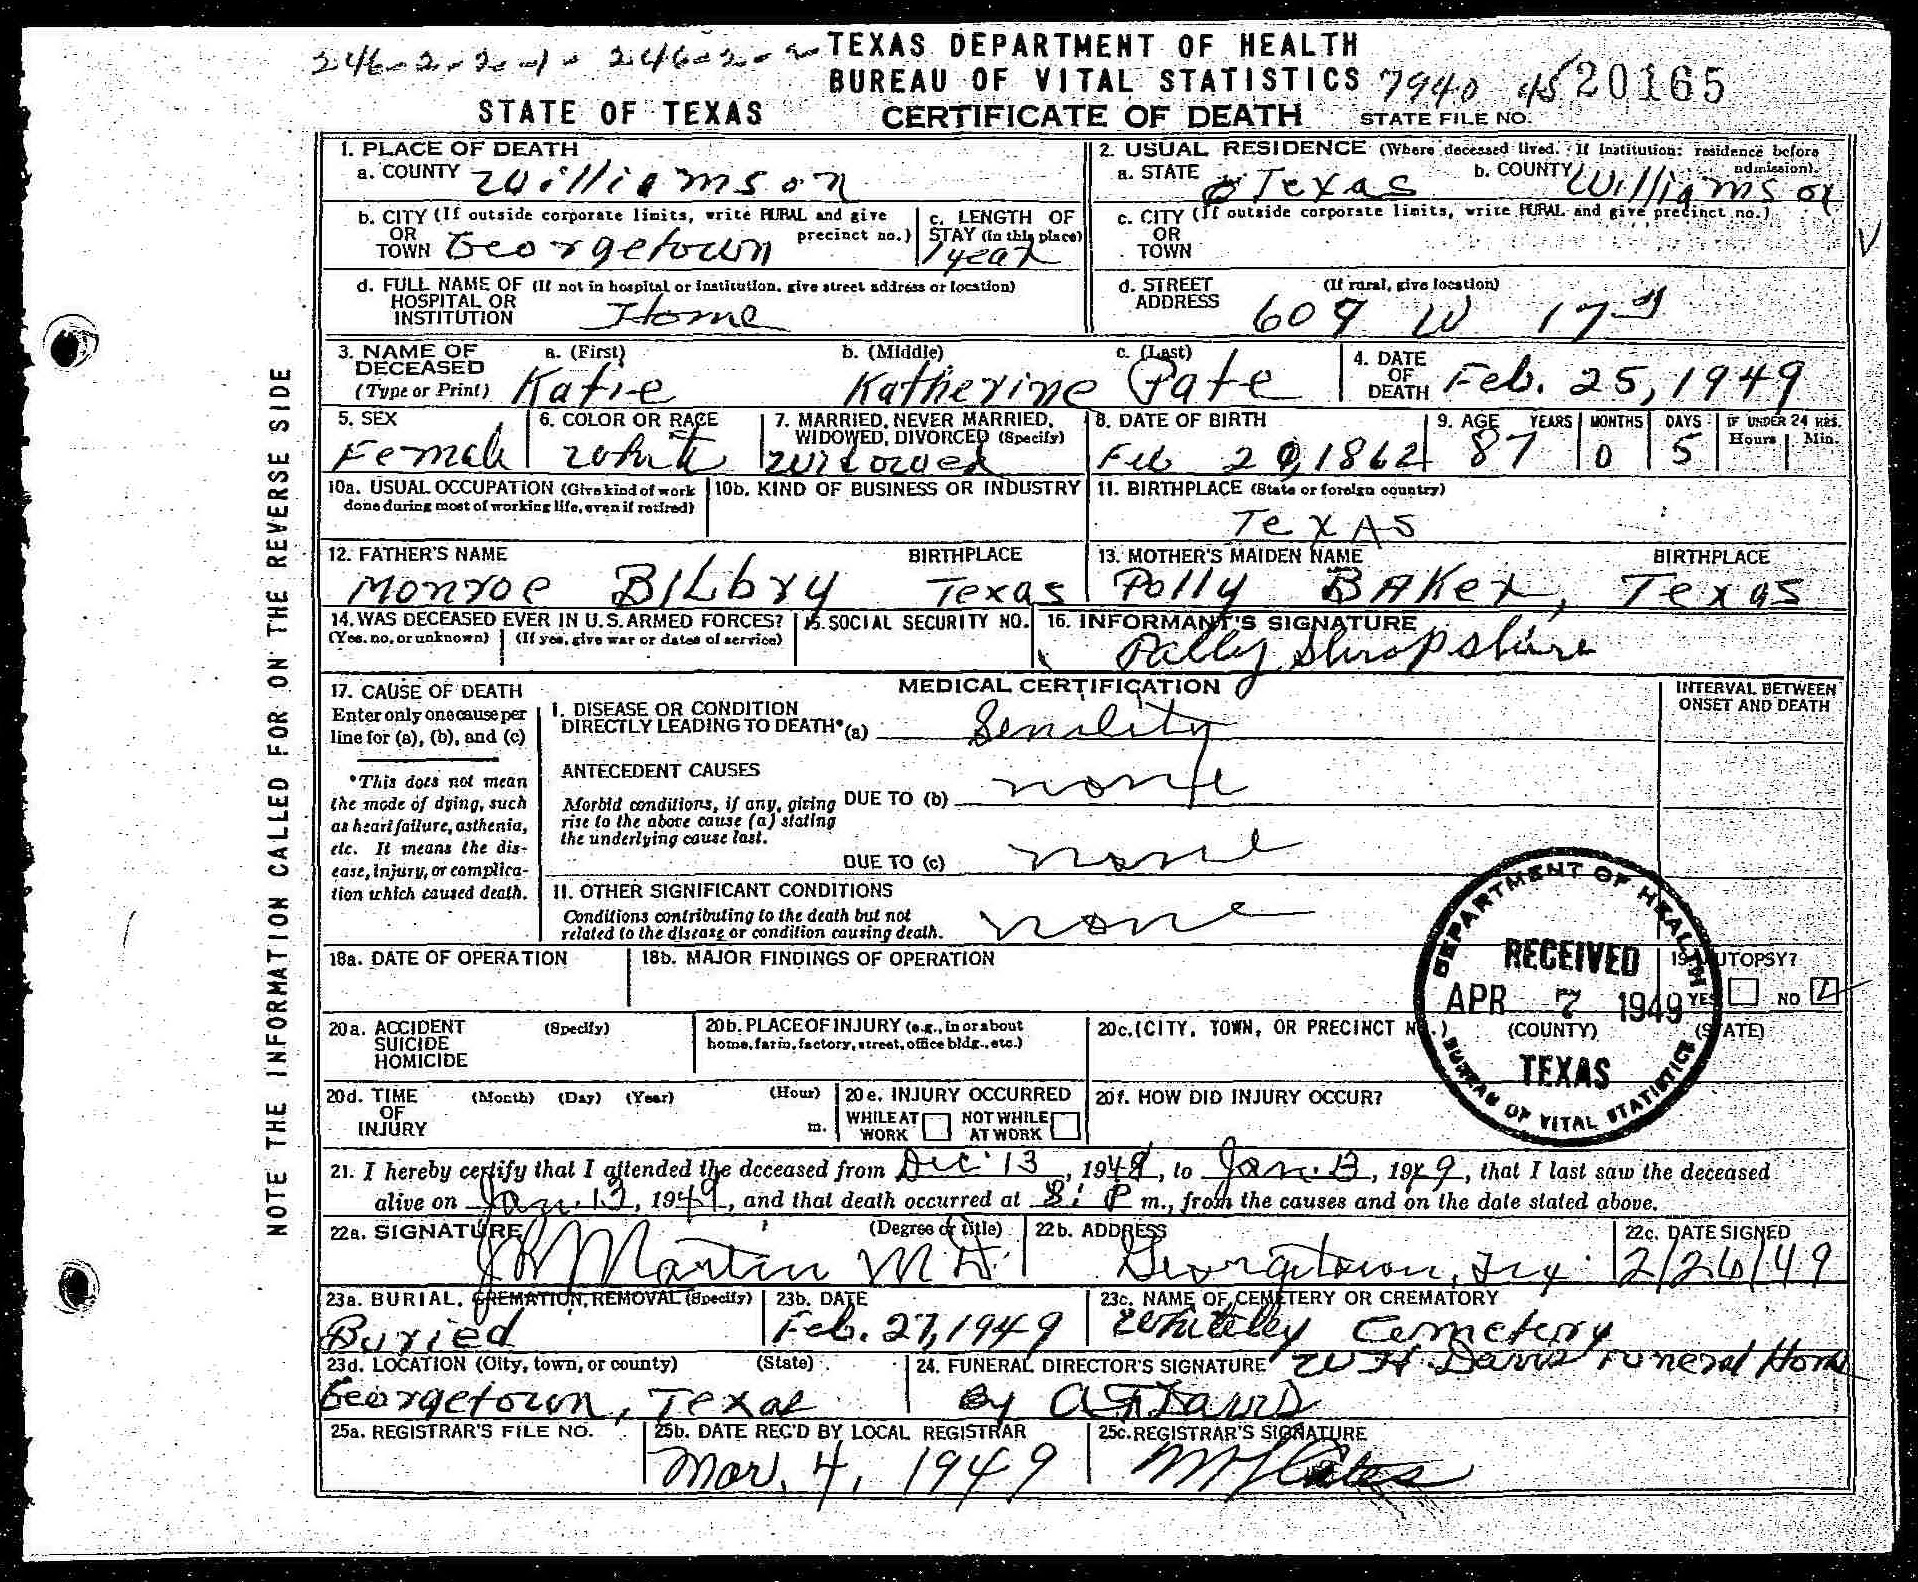 246-2-2-1- 246-2-2 TEXAS DEPARTMENT OF HEALTH
BUREAU OF VITAL STATISTICS 7940 45 20165
STATE OF TEXAS CERTIFICATE OF DEATH STATE FILE NO.
1. PLACE OF DEATH
a. COUNTY Williamson
2. USUAL RESIDENCE (Where deceased lived. If institution: residence before admission).
a. STATE Texas b. COUNTY Williamson
b. CITY (If outside corporate limits, write RURAL and give precinct no.)
OR
TOWN Georgetown
c. LENGTH OF
STAY (in this place)
1 year
c. CITY (If outside corporate limits, write RURAL and give precinct no.)
OR
TOWN
d. FULL NAME OF (If not in hospital or institution, give street address or location)
HOSPITAL OR
INSTITUTION Home
d. STREET (If rural, give location)
ADDRESS 609 W 17
3. NAME OF DECEASED a. (First) b. (Middle) c. (Last)
(Type or Print) Katie Katherine Pate
4. DATE OF DEATH Feb. 25, 1949
5. SEX
Female
6. COLOR OR RACE
White
7. MARRIED, NEVER MARRIED,
WIDOWED, DIVORCED (Specify)
Widowed
8. DATE OF BIRTH
Feb 20, 1862
9. AGE YEARS MONTHS DAYS IF UNDER 24 HRS.
Hours Min.
87 0 5
10a. USUAL OCCUPATION (Give kind of work
done during most of working life, even if retired)
10b. KIND OF BUSINESS OR INDUSTRY
11. BIRTHPLACE (State or foreign country)
Texas
12. FATHER'S NAME BIRTHPLACE
Monroe Bilbry Texas
13. MOTHER'S MAIDEN NAME BIRTHPLACE
Polly Baker, Texas
14. WAS DECEASED EVER IN U.S. ARMED FORCES?
(Yes, no, or unknown) (If yes, give war or dates of service)
15. SOCIAL SECURITY NO.
16. INFORMANT'S SIGNATURE
Polley Shropshire
MEDICAL CERTIFICATION
INTERVAL BETWEEN
ONSET AND DEATH
17. CAUSE OF DEATH
Enter only one cause per
line for (a), (b), and (c)
*This does not mean
the mode of dying, such
as heart failure, asthenia,
etc. It means the dis-
ease, injury, or complica-
tion which caused death.
I. DISEASE OR CONDITION
DIRECTLY LEADING TO DEATH* (a) Senility
ANTECEDENT CAUSES
Morbid conditions, if any, giving
rise to the above cause (a) stating
the underlying cause last.
DUE TO (b) none
DUE TO (c) none
II. OTHER SIGNIFICANT CONDITIONS
Conditions contributing to the death but not
related to the disease or condition causing death.
none
18a. DATE OF OPERATION
18b. MAJOR FINDINGS OF OPERATION
19. AUTOPSY?
YES NO
DEPARTMENT OF HEALTH
RECEIVED
APR 7 1949
TEXAS
BUREAU OF VITAL STATISTICS
20a. ACCIDENT (Specify)
SUICIDE
HOMICIDE
20b. PLACE OF INJURY (e.g., in or about
home, farm, factory, street, office bldg., etc.)
20c. (CITY, TOWN, OR PRECINCT NO.) (COUNTY) (STATE)
20d. TIME (Month) (Day) (Year) (Hour)
OF
INJURY m.
20e. INJURY OCCURRED
WHILE AT WORK NOT WHILE AT WORK
20f. HOW DID INJURY OCCUR?
21. I hereby certify that I attended the deceased from Dec. 13, 1948, to Jan. 13, 1949, that I last saw the deceased
alive on Jan. 13, 1949, and that death occurred at 8: P m., from the causes and on the date stated above.
22a. SIGNATURE (Degree or title)
Martin MD.
22b. ADDRESS
Georgetown, Tex
22c. DATE SIGNED
2/26/49
23a. BURIAL, CREMATION, REMOVAL (Specify)
Buried
23b. DATE
Feb. 27, 1949
23c. NAME OF CEMETERY OR CREMATORY
Whiteley Cemetery
23d. LOCATION (City, town, or county) (State)
Georgetown, Texas
24. FUNERAL DIRECTOR'S SIGNATURE W H. Davis Funeral Home
By Davis
25a. REGISTRAR'S FILE NO.
25b. DATE REC'D BY LOCAL REGISTRAR
Mar. 4, 1949
25c. REGISTRAR'S SIGNATURE
NOTE THE INFORMATION CALLED FOR ON THE REVERSE SIDE